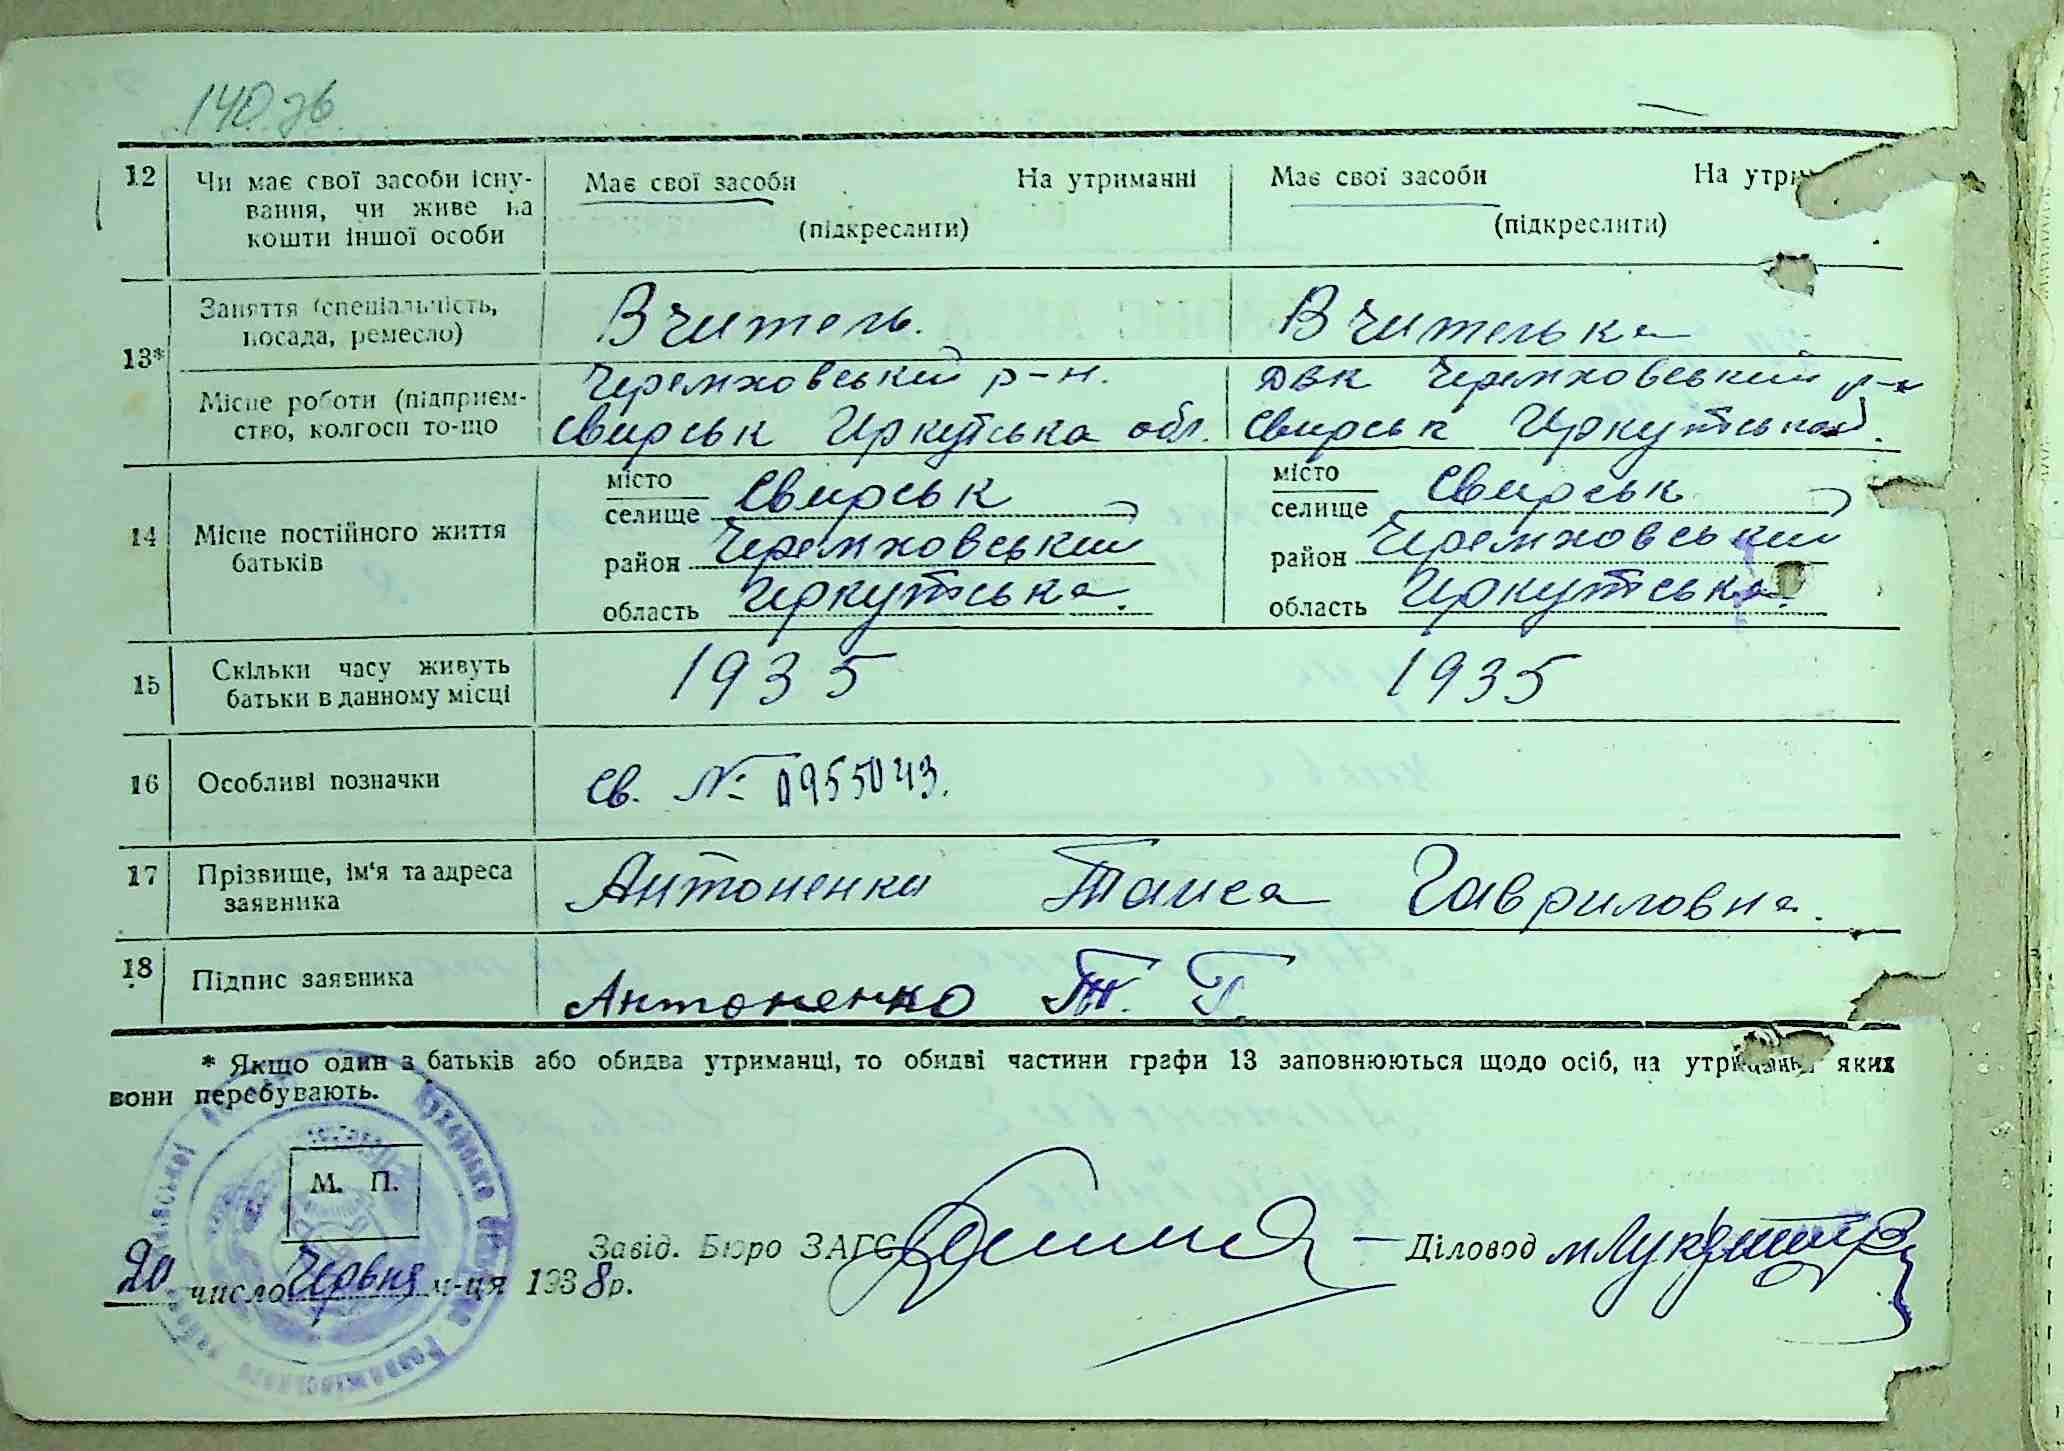 140 зв
12 Чи має свої засоби існування, чи живе на кошти іншої особи
Має свої засоби На утриманні
(підкреслити)
Має свої засоби
(підкреслити)
13*
Заняття (спеціальність, посада, ремесло)
Вчитель.
Вчителька
Місце роботи (підприємство, колгосп то-що
Черемховський р-н.
Свирськ Иркутська обл.
ДВК Черемховський р-н
Свирськ Иркутської.
14 Місце постійного життя батьків
місто
селище Свирськ
район Черемховський
область Иркутська.
місто
селище Свирськ
район Черемховський
область Иркутська.
15 Скільки часу живуть батьки в данному місці
1935
1935
16 Особливі позначки
Св. № 0955043.
17 Прізвище, ім'я та адреса заявника
Антоненко Таиса Гавриловна.
18 Підпис заявника
Антоненко Т. Г.
* Якщо один з батьків або обидва утриманці, то обидві частини графи 13 заповнюються щодо осіб, на утриманні яких
вони перебувають.
М. П.
Завід. Бюро ЗАГС
Діловод
20 число Червня м-ця 1938 р.